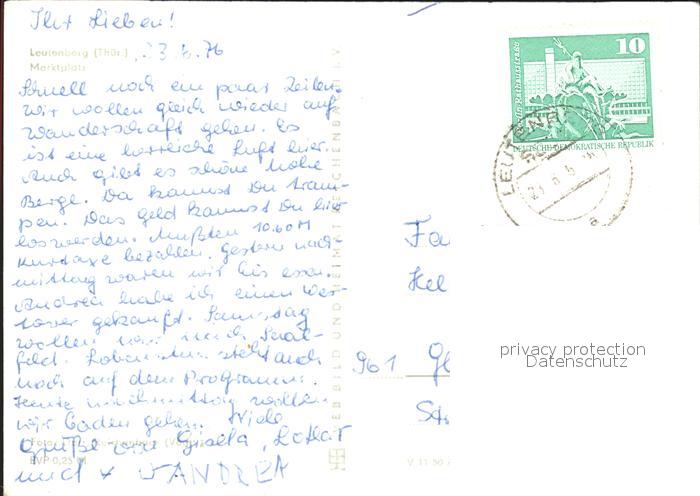 Ihr Lieben!
Leutenberg (Thür.)
Marktplatz
23.6.76
Schnell noch ein paar Zeilen.
Wir wollen gleich wieder auf
Wanderschaft gehen. Es
ist eine herrliche Luft hier.
Auch gibt es schöne hohe
Berge. Da kannst Du tram-
pen. Das Geld kannst Du hier
loswerden. Mußten 10.60 M
Kurtaxe bezahlen. Gestern nach-
mittag waren wir Eis essen.
Andrea habe ich einen
gekauft. Samstag
wollen wir nach Saal-
feld. steht auch
noch auf dem Programm.
Heute nachmittag wollen
wir baden gehen. Viele
Grüße von Gisela, Lothar
und ANDREA
EVP 0,25 M
BILD UND HEIMAT REICHENBACH I. V
V 11 50
10
Berlin, Rathausstraße
DEUTSCHE DEMOKRATISCHE REPUBLIK
LEUTENB
23.6.
a
Fa
Hel
961 Gl
St
privacy protection
Datenschutz